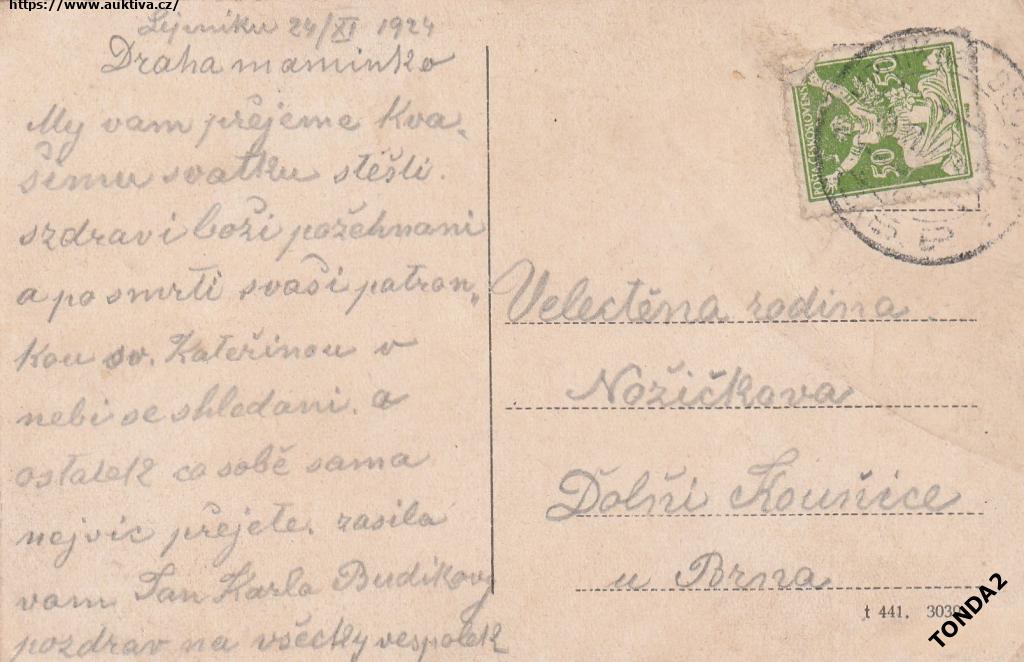 https://www.auktiva.cz/
Lipníku 24/XI 1924
Draha maminko
My vam přejeme kva„
šemu svatku stěsti.
szdravi boži požehnani
a po smrti svaši patron„
kou sv. Kateřinou v
nebi se shledani. a
ostatek co sobě sama
nejvic přejete. zasila
vam Jan Karla Budikovy
pozdrav na všecky vespolek
POŠTA ČESKOSLOVENSKÁ
50
50
Velectěna rodina
Nožičkova
Dolňi Kouňice
u Brna
t 441. 3039
TONDA2